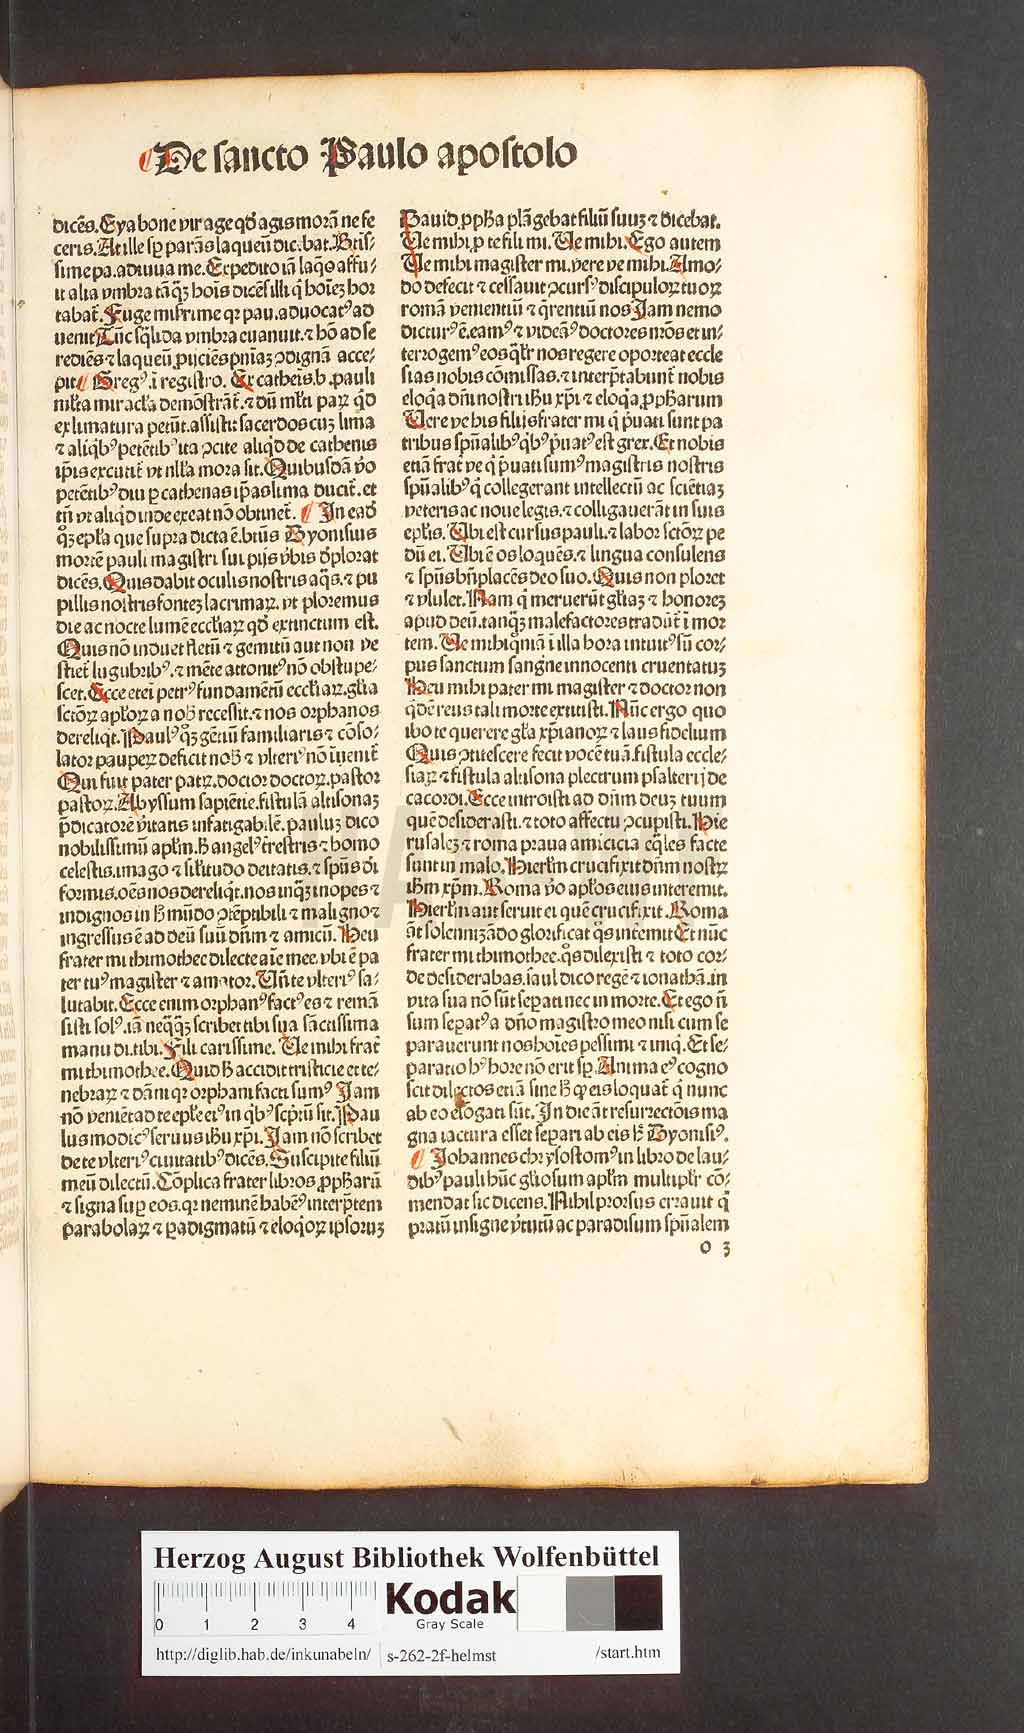 De sancto Paulo apostolo
dicẽs. Eya bone vir age qḋ agis morã ne fe
ceris. At ille sꝑ parãs laqueũ dicebat. Btĩs⸗
sime pa. adiuua me. Expedito iã laq̃o affu⸗
it alia vmbra tãq̃ꝫ hoĩs dicẽs illi q̃ hoĩeꝫ hor
tabat̃. Fuge misrime qꝛ pau. aduocatꝰ ad
uenit Tũc sq̃lida vmbra euanuit. ⁊ hõ ad se
rediẽs ⁊ laqueũ ꝓijciẽs pñiaꝫ ꝯdignã acce⸗
pit Gregꝰ. ĩ registro. Ex cathenis. b. pauli
mĩta miracl̃a demõstrãt̃. ⁊ dũ ml̃ti paꝝ q̃d
ex limatura petũt. assistit sacerdos cuꝫ lima
⁊ aliq̃bꝰ petẽtibꝰ ita ꝯcite aliq̃d de cathenis
ip̃is excutit̃ vt nll̃a mora sit. Quibusdã ṽo
petẽtibꝰ diu ꝑ cathenas ip̃as lima ducit̃. et
tñ vt aliq̃d inde exeat nõ obtinet̃. In eaḋ
q̊ꝫ epl̃a que supra dicta ẽ. btũs Dyonisius
mortẽ pauli magistri sui pijs ṽbis deplorat
dicẽs. Quis dabit oculis nostris aq̃s. ⁊ pu
pillis nostris fonteꝫ lacrimaꝝ. vt ploremus
die ac nocte lumẽ eccl̃iaꝝ qḋ extinctum est.
Quis nõ induet fletũ ⁊ gemitũ aut non ve
stiet̃ lugubribꝰ. ⁊ mẽte attonitꝰ nõ obstupe⸗
scet. Ecce etei petrꝰ fundamẽtũ eccl̃iaꝝ. gl̃ia
sctõꝝ apl̃oꝝ a nob̃ recessit. ⁊ nos orphanos
dereliq̃t. Paulꝰ q̊ꝫ gẽtiũ familiaris ⁊ cõso⸗
lator paupeꝝ deficit nob̃ ⁊ vlteriꝰ nõ ĩuenit̃
Qui fuit pater patꝝ. doctor doctoꝝ. pastor
pastoꝝ. Abyssum sapiẽtie. fistulã altisonaꝫ
p̃dicatorẽ ṽitatis infatigabilẽ. pauluꝫ dico
nobilissimũ apl̃m. H̃ angelꝰ t̃restris ⁊ homo
celestis. imago ⁊ sil̃itudo deitatis. ⁊ spũs d̃i
formis. oẽs nos dereliq̃t. nos inq̃ꝫ inopes ⁊
indignos in h̃ mũdo ꝯtẽptibili ⁊ maligno ⁊
ingressus ẽ ad deũ suũ dñm ⁊ amicũ. Heu
frater mi thimothee dilecte aĩe mee. vbi ẽ pa
ter tuꝰ magister ⁊ amator. Uñ te vlteriꝰ sa⸗
lutabit. Ecce enim orphanꝰ factꝰ es ⁊ remã
sisti solꝰ. iã neq̃q̃ꝫ scribet tibi sua sãctissima
manu di. tibi. Fili carissime. Ue mihi frat̃
mi thimothee. Quid h̃ accidit tristicie et te⸗
nebraꝝ ⁊ dãni qꝛ orphani facti sumꝰ Jam
nõ veniẽt ad te epl̃e eiꝰ in q̃bꝰ scp̃tũ sit. Pau
lus modicꝰ seruus ihũ xp̃i. Jam nõ scribet
de te vlteriꝰ ciuitatibꝰ dicẽs. Suscipite filiũ
meũ dilectũ. Cõplica frater libros ꝓph̃arũ
⁊ signa suꝑ eos. qꝛ neminẽ habẽꝰ interp̃tem
parabolaꝝ ⁊ ꝑadigmatũ ⁊ eloq̃oꝝ ipsoruꝫ
Dauid ꝓph̃a plãgebat filiũ suuꝫ ⁊ dicebat.
Ue mihi ꝓ te fili mi. Ue mihi. Ego autem
Ue mihi magister mi. vere ve mihi. Amo⸗
do defecit ⁊ cessauit ꝯcursꝰ discipuloꝝ tuoꝝ
romã venientiũ ⁊ q̃rentiũ nos Jam nemo
dictur̃ ẽ. eamꝰ ⁊ videãꝰ doctores nr̃os et in⸗
terrogemꝰ eos q̃lr̃ nos regere oporteat eccle
sias nobis cõmissas. ⁊ interp̃tabunt̃ nobis
eloq̃a dñi nostri ihũ xp̃i ⁊ eloq̃a ꝓph̃arum
Uere ve his filijs frater mi q̃ p̃uati sunt pa
tribus spũalibꝰ q̃bꝰ p̃uatꝰ est grex. Et nobis
etiã frat̃ ve q̃ p̃uati sumꝰ magistris nostris
spũalibꝰ q̃ collegerant intellectũ ac sciẽtiaꝫ
veteris ac noue legis. ⁊ colligauerãt in suis
epl̃is. Ubi est cursus pauli. ⁊ labor sctõꝝ pe
dũ ei. Ubi ẽ os loquẽs. ⁊ lingua consulens
⁊ spũs bñplacẽs deo suo. Quis non ploret
⁊ vlulet. Nam q̃ meruerũt gl̃iaꝫ ⁊ honoreꝫ
apud deũ. tanq̃ꝫ malefactores tradũt̃ ĩ mor
tem. Ue mihi q̃niã ĩ illa hora intuitꝰ sũ cor⸗
pus sanctum sangĩne innocenti cruentatuꝫ
Heu mihi pater mi magister ⁊ doctor non
q̃dẽ reus tali morte extitisti. Nũc ergo quo
ibo te querere gl̃a xp̃ianoꝝ ⁊ laus fidelium
Quis ꝯtitescere fecit vocẽ tuã. fistula eccle⸗
siaꝝ ⁊ fistula altisona plectrum psalterij de
cacordi. Ecce introisti ad dñm deuꝫ tuum
quẽ desiderasti. ⁊ toto affectu ꝯcupisti. Hie
rusaleꝫ ⁊ roma praua amicicia eq̃les facte
sunt in malo. Hierl̃m crucifixit dñm nostꝝ
ihm̃ xp̃m. Roma ṽo apl̃os eius interemit.
Hierl̃m aut seruit ei quẽ crucifixit. Roma
ãt solennizãdo glorificat q̊s intẽmit Et nũc
frater mi thimothee. q̊s dilexisti ⁊ toto cor⸗
de desiderabas. saul dico regẽ ⁊ ionathã. in
vita sua nõ sũt sepati nec in morte. Et ego ñ
sum sepatꝰ a dño magistro meo nisi cum se
parauerunt nos hoĩes pessimi ⁊ iniq̃. Et se⸗
paratio hꝰ hore nõ erit sꝑ. Anima eꝰ cogno
scit dilectos etiã sine h̃ ꝙ eis loquat̃ q̃ nunc
ab eo elõgati sũt. In die ãt resurrectiõis ma
gna iactura esset separi ab eis h̃ Dyonisiꝰ.
Johannes chrysostomꝰ in libro de lau⸗
dibꝰ pauli hũc gl̃iosum apl̃m multipl̃r cõ⸗
mendat sic dicens. Nihil prorsus errauit q̃
pratũ insigne ṽtutũ ac paradisum spũalem
o 3
HAB-WF
Herzog August Bibliothek Wolfenbüttel
0 1 2 3 4
Kodak
Gray Scale
http://diglib.hab.de/inkunabeln/ s-262-2f-helmst /start.htm